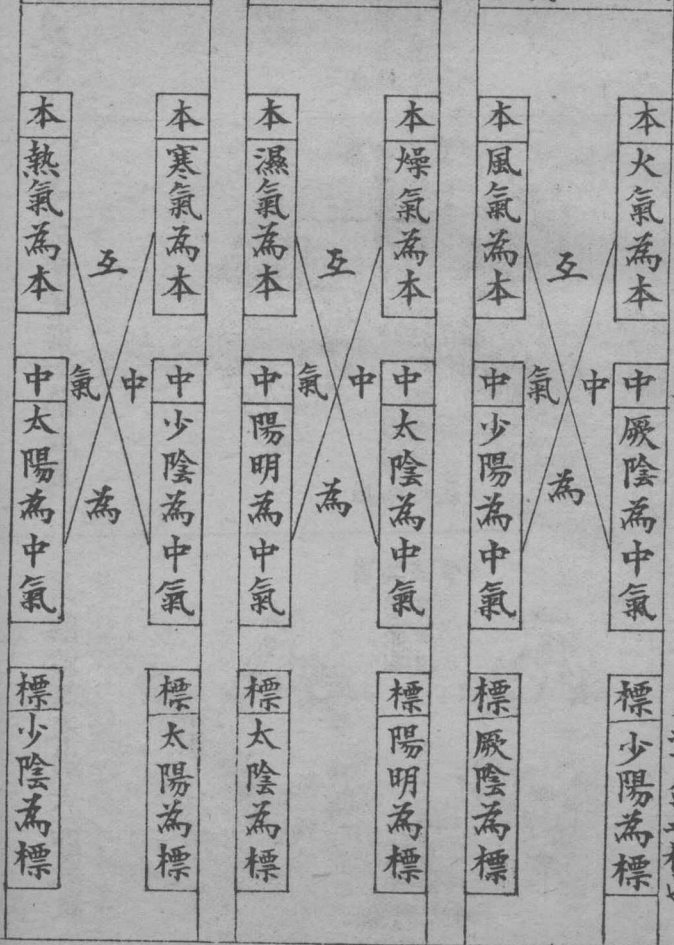 本
火氣為本
中
厥陰為中氣
標
少陽為標
互
中氣
為
本
風氣為本
中
少陽為中氣
標
厥陰為標
本
燥氣為本
中
太陰為中氣
標
陽明為標
互
中氣
為
本
濕氣為本
中
陽明為中氣
標
太陰為標
本
寒氣為本
中
少陰為中氣
標
太陽為標
互
中氣
為
本
熱氣為本
中
太陽為中氣
標
少陰為標